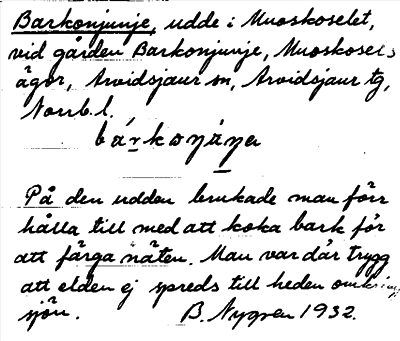 Barkonjunje, udde i Muoskoselet,
vid gården Barkonjunje, Muoskosels
ägor, Arvidsjaur sn, Arvidsjaur tg,
Norrb. l.
På den udden brukade man förr
hålla till med att koka bark för
att färga näten. Man var där trygg
att elden ej spreds till heden omkring
sjön. B. Nygren 1932.